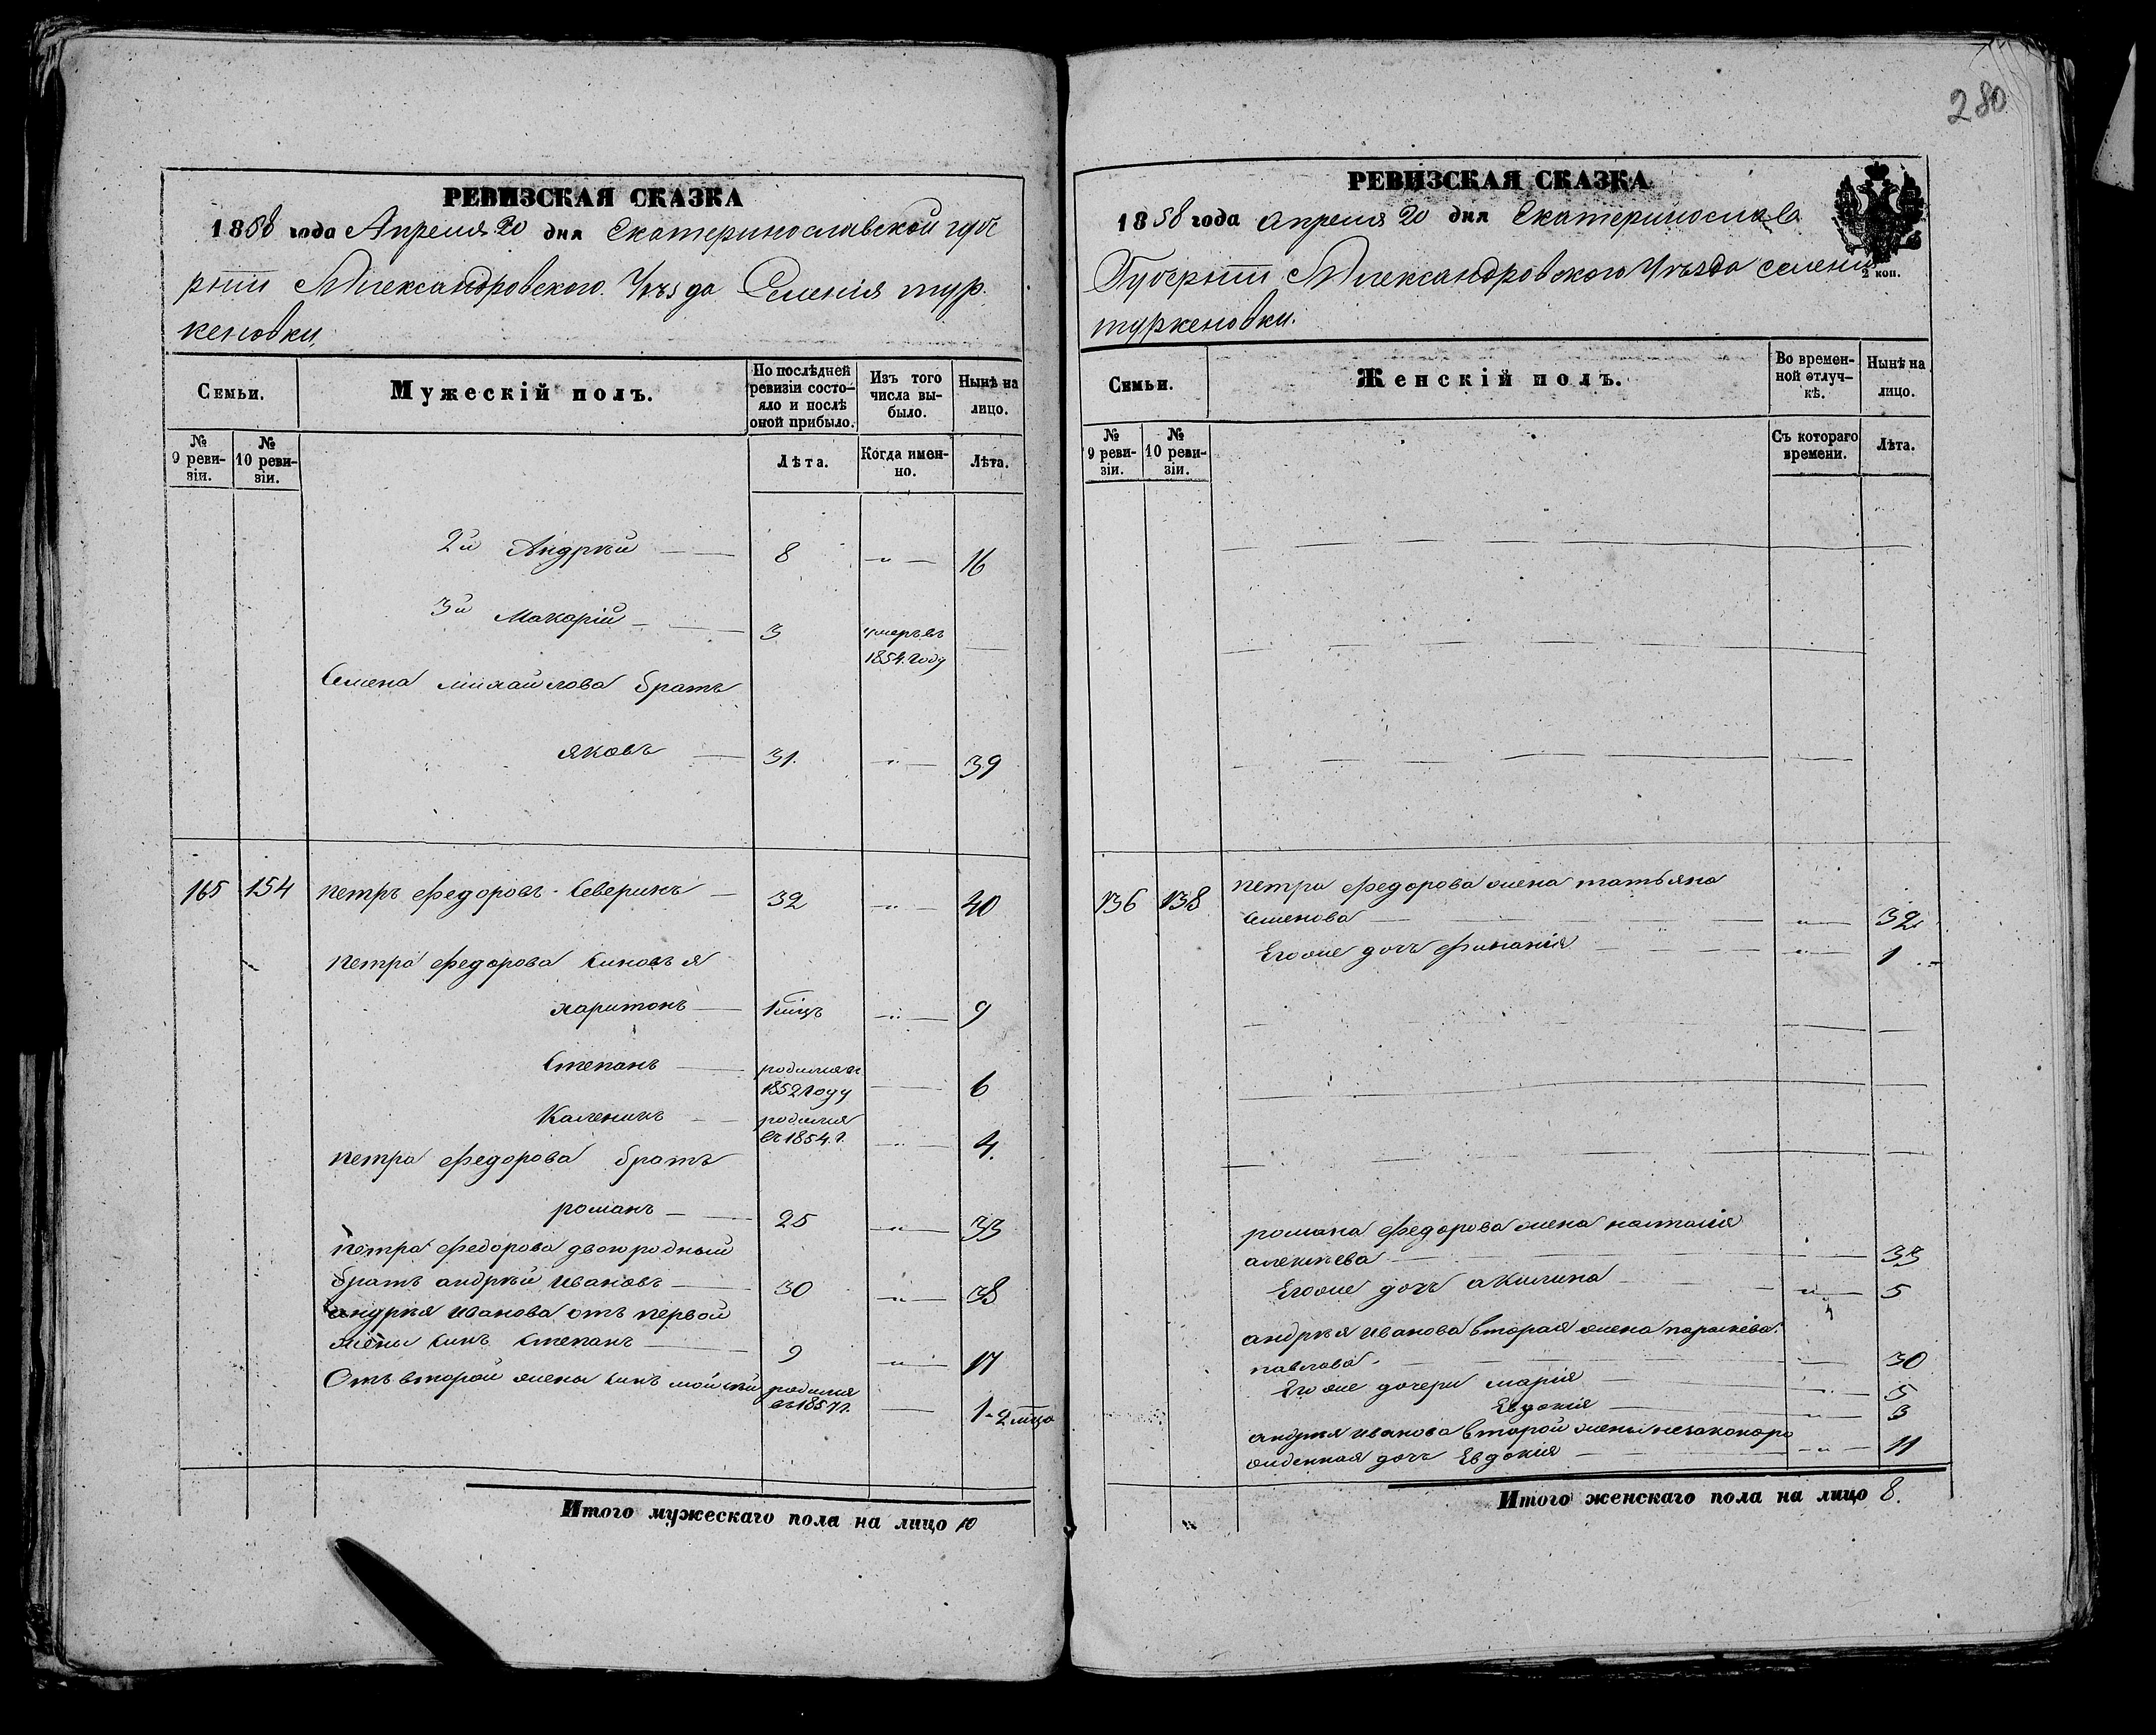 280
РЕВИЗСКАЯ СКАЗКА
1858 года Апреля 20 дня Екатеринославской губе
рніи Александровского Уѣзда Селенія тур
кеновки.
Семьи.
Мужескій полъ.
По послѣдней ревизіи состояло и послѣ оной прибыло.
Изъ того числа выбыло.
Нынѣ на лицо.
№ 9 ревизіи.
№ 10 ревизіи.
Лѣта.
Когда именно.
Лѣта.
2й Андрѣй 8 16
3й Макарій 3 умеръ въ
1854 году
Семена михайлова братъ
яковъ 31. 39
165 154 петръ федоровъ Северинъ 32 40
петра федорова Синовья
харитонъ 9
Степанъ родился въ
1852 году 6
Каленикъ родился
въ 1854. г. 4.
петра федорова братъ
романъ 25 33
петра федорова двоюродный
братъ андрѣй ивановъ 30 38
андрѣя иванова отъ первой
жены синъ Степанъ 9 17
Отъ второй жены синъ мойсѣй родился
въ 1857 г. 1
Итого мужескаго пола на лицо 10
РЕВИЗСКАЯ СКАЗКА
1858 года апреля 20 дня
Губерніи Александровского Уѣзда селенія
туркеновки.
2 коп.
Семьи.
Женскій полъ.
Во временной отлучкѣ.
Нынѣ на лицо.
№ 9 ревизіи.
№ 10 ревизіи.
Съ котораго времени.
Лѣта.
136 138 петра федорова жена татьяна
Семенова 32
Егоже дочь 1
романа федорова жена наталія
алексѣева 33
Егоже дочь акилина 5
андрѣя иванова вторая жена
павлова 30
Егоже дочери марія 5
Евдокія 3
андрѣя иванова второй жены незаконоро
жденная дочь Евдокія 11
Итого женскаго пола на лицо 8.